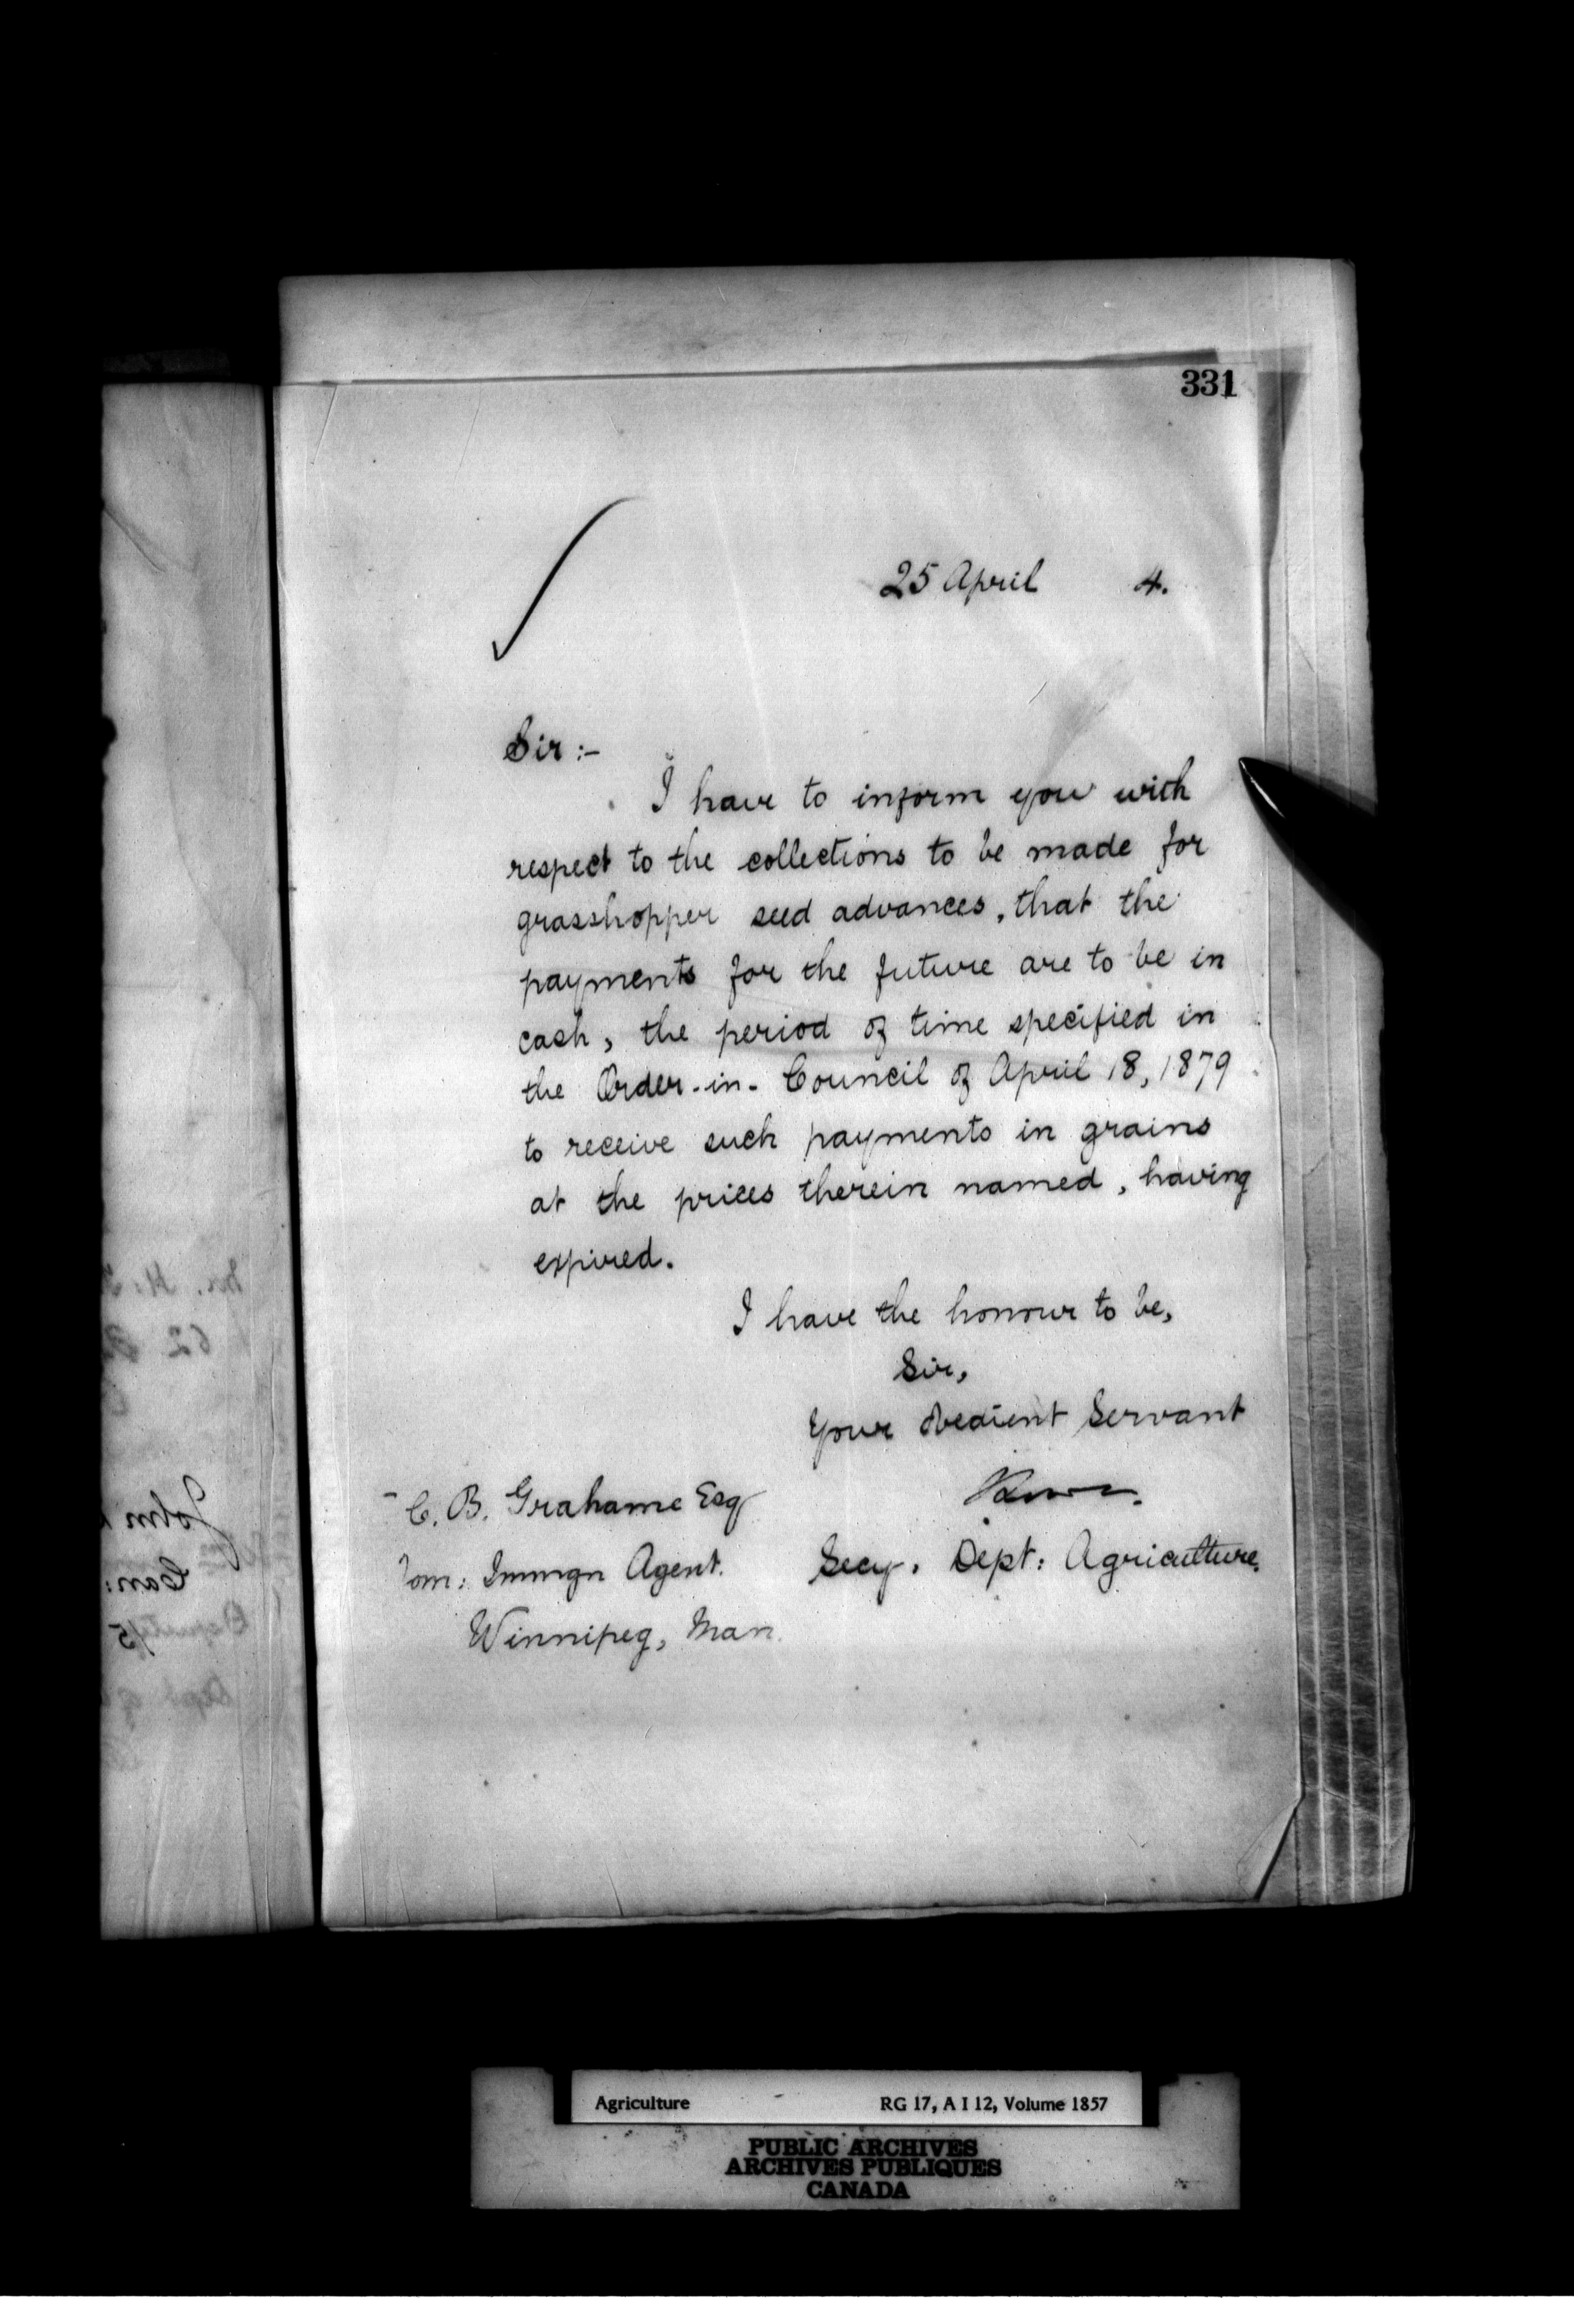 331
25 April 4.
Sir :-
I have to inform you with
respect to the collections to be made for
grasshopper seed advances, that the
payments for the future are to be in
cash, the period of time specified in
the Order-in-Council of April 18, 1879
to receive such payments in grains
at the prices therein named, having
expired.
I have the honour to be,
Sir,
Your obedient Servant
Secy. Dept: Agriculture.
C. B. Grahame Esq
Dom: Immgn Agent.
Winnipeg, Man.
Agriculture RG 17, A I 12, Volume 1857
PUBLIC ARCHIVES
ARCHIVES PUBLIQUES
CANADA